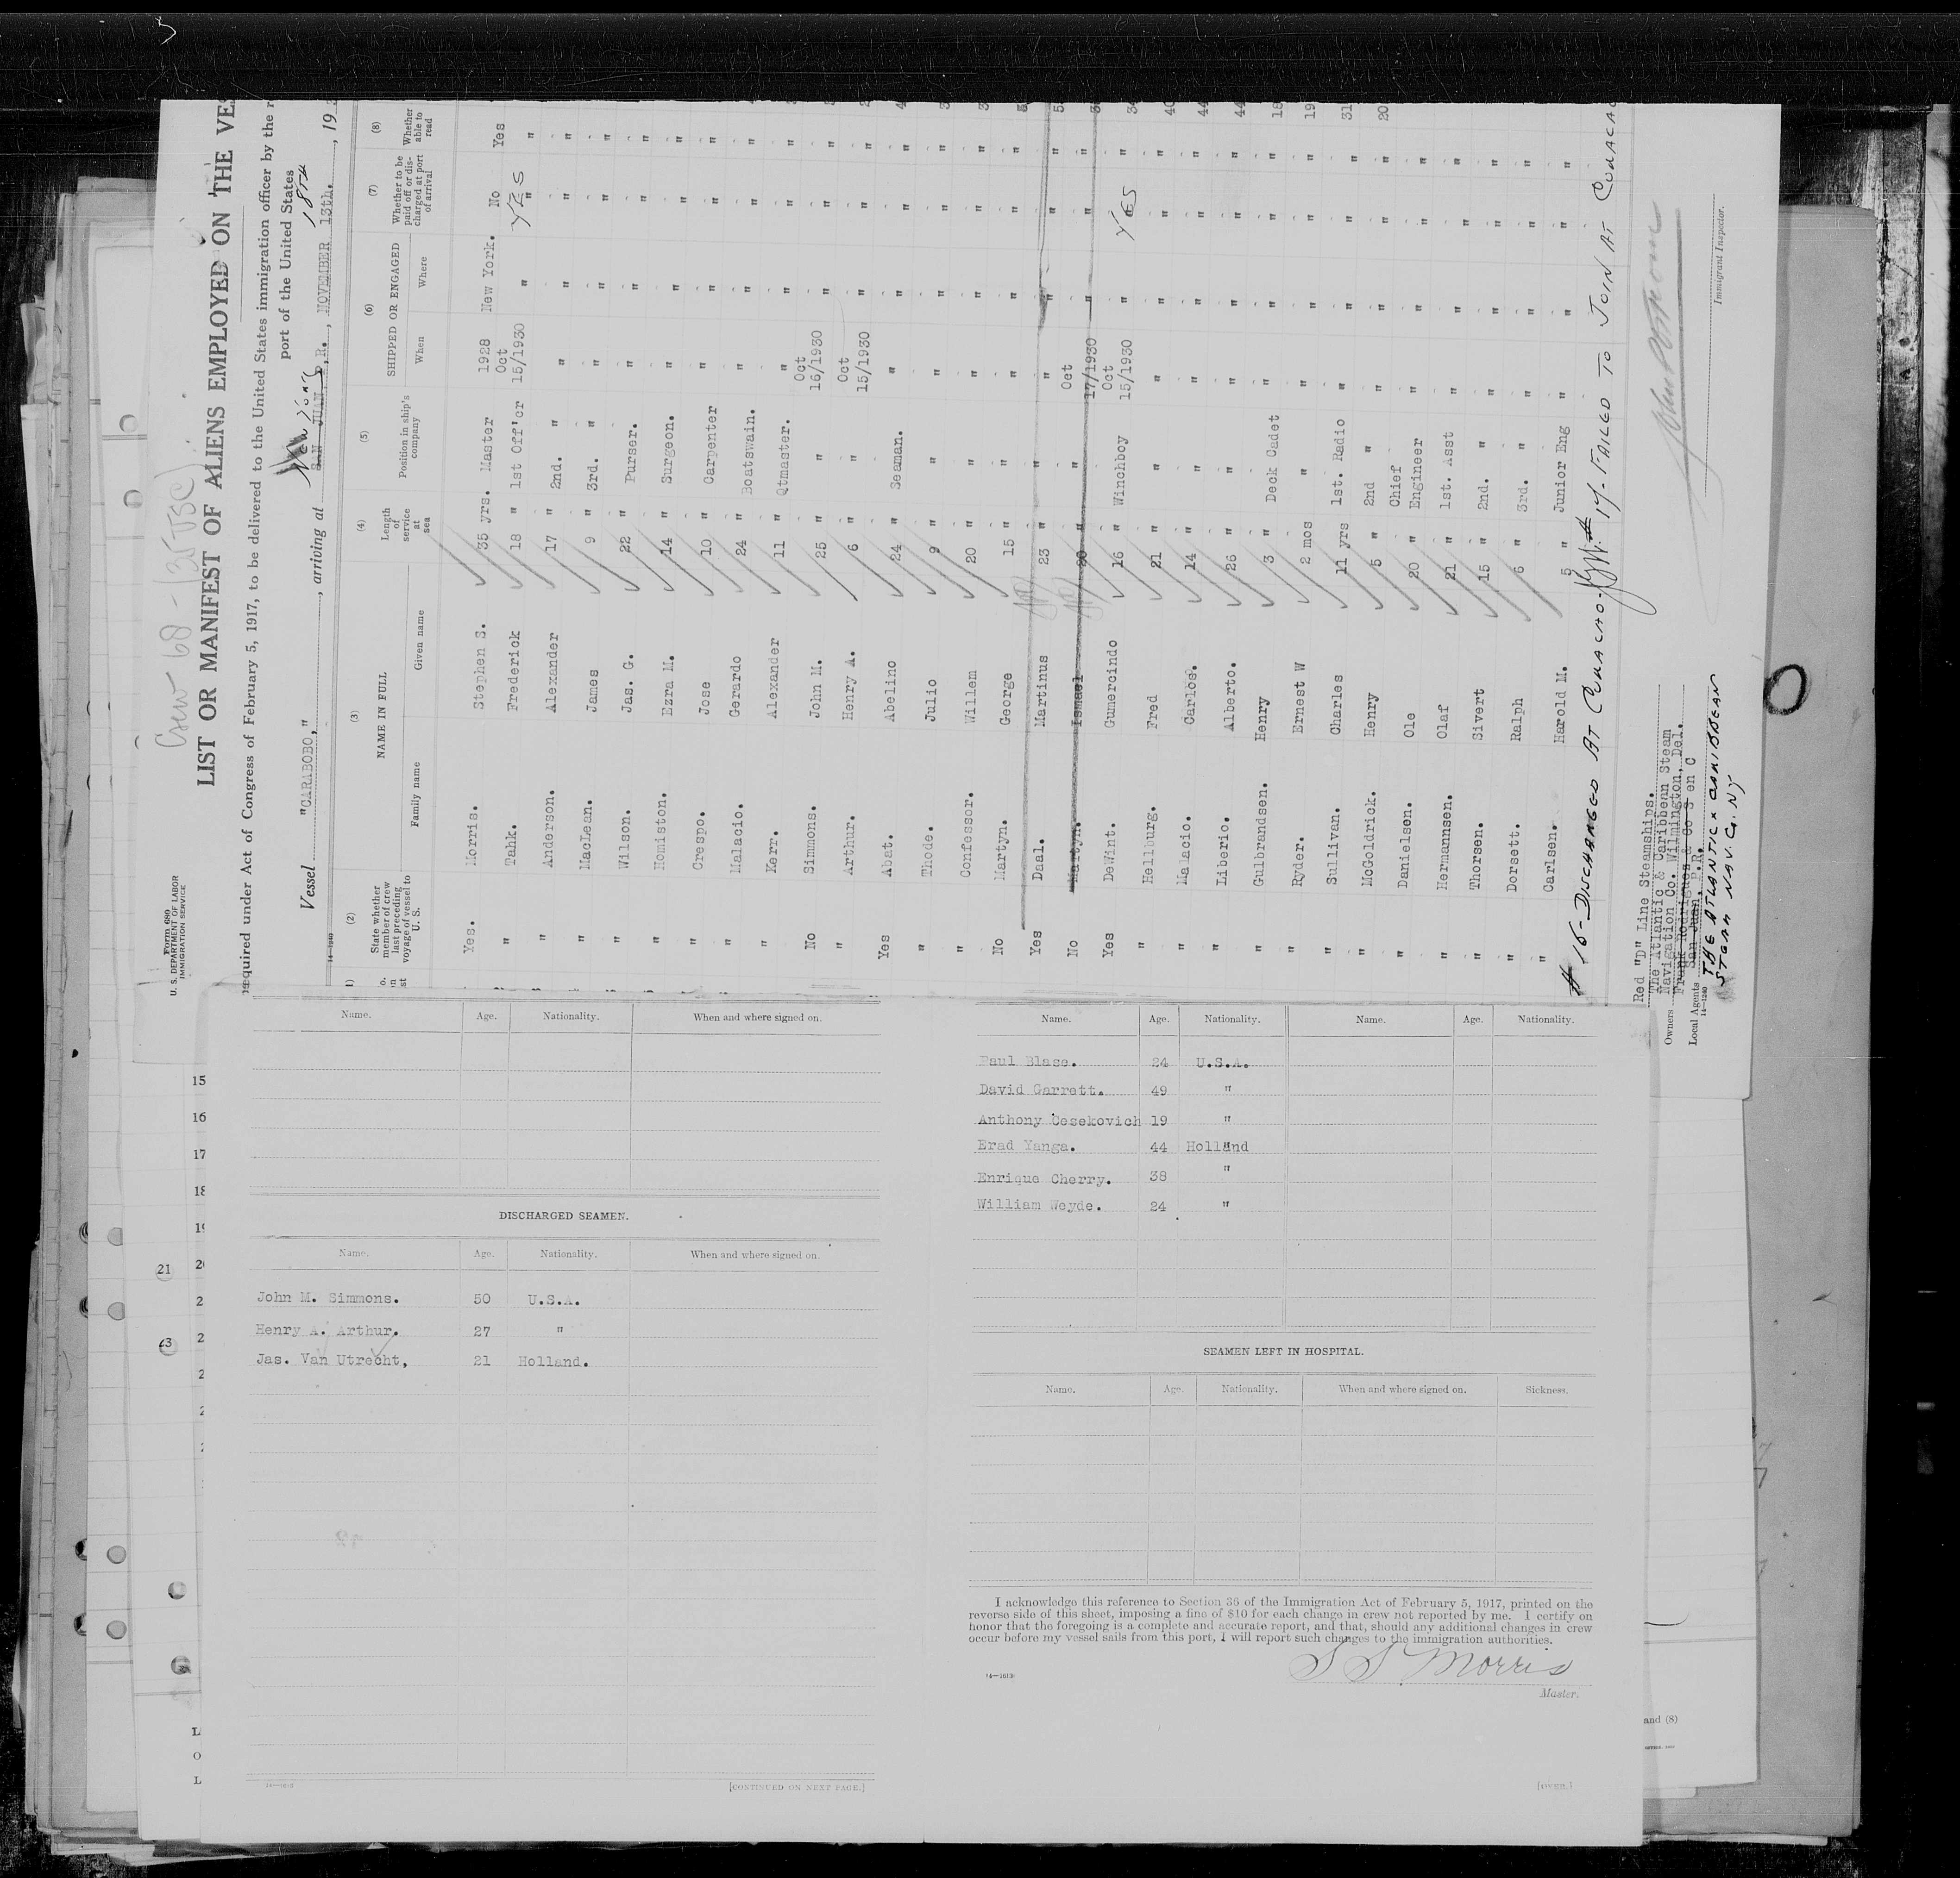 Crew 68 -
LIST OR MANIFEST OF ALIENS EMPLOYED ON THE
Form 680
U. S. DEPARTMENT OF LABOR
IMMIGRATION SERVICE
required under Act of Congress of February 5, 1917, to be delivered to the United States immigration officer by the
port of the United States
New York 18TH
Vessel "CARABOBO," , arriving at SAN JUAN P.R., NOVEMBER 13th. , 19
14-1240
(2) (3) (4) (5) (6) (7) (8)
State whether member of crew last preceding voyage of vessel to U. S. NAME IN FULL Length of service at sea Position in ship's company SHIPPED OR ENGAGED Whether to be paid off or discharged at port of arrival Whether able to read
Family name Given name When Where
Yes. Morris. Stephen S. 35 yrs. Master 1928 New York. No Yes
" Tahk. Frederick 18 " 1st Off'er Oct 15/1930 " YES " "
" Anderson. Alexander 17 " 2nd. " " " " "
" MacLean. James 9 " 3rd. " " " " "
" Wilson. Jas. G. 22 " Purser. " " " "
" Homiston. Ezra M. 14 " Surgeon. " " " "
" Crespo. Jose 10 " Carpenter " " " "
" Malacio. Gerardo 24 " Boatswain. " " " "
" Kerr. Alexander 11 " Qtmaster. " " " "
No Simmons. John M. 25 " " Oct 16/1930 " " "
" Arthur. Henry A. 6 " " Oct 15/1930 " " "
Yes Abat. Abelino 24 " Seaman. " " " "
" Thode. Julio 9 " " " " " "
" Confessor. Willem 20 " " " " " "
No Martyn. George 15 " " " " " "
Yes Daal. Martinus 23 " " " " " "
No Martyn. Ismael 20 " " Oct 17/1930 " " "
Yes DeWint. Gumercindo 16 " Winchboy Oct 15/1930 " YES "
" Hellburg. Fred 21 " " " " " "
" Malacio. Carlos. 14 " " " " " "
" Liberio. Alberto. 26 " " " " " "
" Gulbrandsen. Henry 3 " Deck Cadet " " " "
" Ryder. Ernest W 2 mos " " " " "
" Sullivan. Charles 11 yrs 1st. Radio " " " "
" McGoldrick. Henry 5 " 2nd " " " " "
" Danielsen. Ole 20 " Chief Engineer " " " "
" Hermannsen. Olaf 21 " 1st. Asst " " " "
" Thorsen. Sivert 15 " 2nd. " " " " "
" Dorsett. Ralph 6 " 3rd. " " " " "
" Carlsen. Harold M. 5 " Junior Eng " " " "
# 16 - DISCHARGED AT CURACAO - # 17 - FAILED TO JOIN AT CURACAO
Red "D" Line Steamships.
The Atlantic & Caribbean Steam
Owners Navigation Co. Wilmington, Del.
Frunk Rodrigues & Co S en C
Local Agents San Juan, P.R.
14-1240
THE ATLANTIC & CARIBBEAN
STEAM NAV. Co. NY
Immigrant Inspector.
Name. Age. Nationality. When and where signed on.
DISCHARGED SEAMEN.
Name. Age. Nationality. When and where signed on.
John M. Simmons. 50 U.S.A.
Henry A. Arthur. 27 "
Jas. Van Utrecht, 21 Holland.
[CONTINUED ON NEXT PAGE.]
Name. Age. Nationality. Name. Age. Nationality.
Paul Blase. 24 U.S.A.
David Garrett. 49 "
Anthony Cesekovich 19 "
Erad Yanga. 44 Holland
Enrique Cherry. 38 "
William Weyde. 24 "
SEAMEN LEFT IN HOSPITAL.
Name. Age. Nationality. When and where signed on. Sickness.
I acknowledge this reference to Section 36 of the Immigration Act of February 5, 1917, printed on the
reverse side of this sheet, imposing a fine of $10 for each change in crew not reported by me. I certify on
honor that the foregoing is a complete and accurate report, and that, should any additional changes in crew
occur before my vessel sails from this port, I will report such changes to the immigration authorities.
S S Morris
Master.
14-1613
[OVER.]
15
16
17
18
21
and (8)